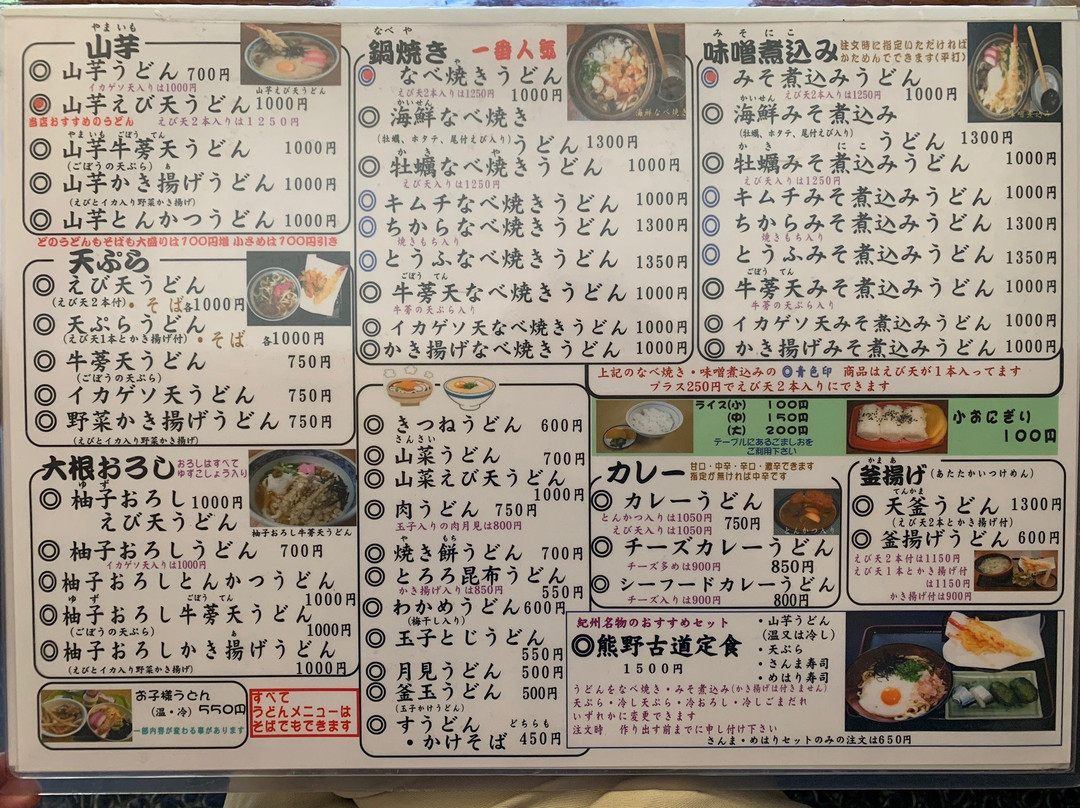 やまいも
山芋
山芋うどん 700円
イカゲソ天入りは1000円
山芋えび天うどん
山芋えび天うどん 1000円
当店おすすめのうどん えび天2本入りは1250円
やまいも ごぼう てん
山芋牛蒡天うどん 1000円
(ごぼうの天ぷら) あ
山芋かき揚げうどん 1000円
(えびとイカ入り野菜かき揚げ)
山芋とんかつうどん 1000円
どのうどんもそばも大盛りは100円増 小さめは100円引き
天ぷら
えび天うどん
(えび天2本付)・そば各1000円
天ぷらうどん
(えび天1本とかき揚げ付)・そば 各1000円
牛蒡天うどん 750円
(ごぼうの天ぷら)
イカゲソ天うどん 750円
野菜かき揚げうどん 750円
(えびとイカ入り野菜かき揚げ)
大根おろし
おろしはすべて
ゆずこしょう入り
ゆず
柚子おろし 1000円
えび天うどん
柚子おろし牛蒡天うどん
柚子おろしうどん 700円
イカゲソ天入りは1000円
柚子おろしとんかつうどん
1000円
ゆず ごぼう てん
柚子おろし牛蒡天うどん
(ごぼうの天ぷら) 1000円
あ
柚子おろしかき揚げうどん
(えびとイカ入り野菜かき揚げ) 1000円
お子様うどん
(温・冷) 550円
一部内容が変わる事があります
すべて
うどんメニューは
そばでもできます
なべや
鍋焼き 一番人気
や
なべ焼きうどん
えび天2本入りは1250円 1000円
海鮮なべ焼き
かいせん
海鮮なべ焼き
(牡蠣、ホタテ、尾付えび入り) うどん 1300円
かき や
牡蠣なべ焼きうどん 1000円
えび天入りは1250円
キムチなべ焼きうどん 1000円
ちからなべ焼きうどん 1300円
焼きもち入り
とうふなべ焼きうどん 1350円
ごぼう てん
牛蒡天なべ焼きうどん 1000円
牛蒡の天ぷら入り
イカゲソ天なべ焼きうどん 1000円
かき揚げなべ焼きうどん 1000円
きつねうどん 600円
さんさい
山菜うどん 700円
山菜えび天うどん
1000円
肉うどん 750円
玉子入りの肉月見は800円
や もち
焼き餅うどん 700円
とろろ昆布うどん
かき揚げ入りは850円 550円
わかめうどん 600円
(梅干し入り)
玉子とじうどん
550円
月見うどん 500円
釜玉うどん 500円
(玉子かけうどん)
すうどん どちらも
・かけそば 450円
みそにこ
味噌煮込み
注文時に指定いただければ
かためんでできます(平打)
みそ煮込みうどん
えび天2本入りは1250円 1000円
かいせん
海鮮みそ煮込み
(牡蠣、ホタテ、尾付えび入り) うどん 1300円
かき にこ
牡蠣みそ煮込みうどん 1000円
えび天入りは1250円
キムチみそ煮込みうどん 1000円
ちからみそ煮込みうどん 1300円
焼きもち入り
とうふみそ煮込みうどん 1350円
ごぼう てん
牛蒡天みそ煮込みうどん 1000円
牛蒡の天ぷら入り
イカゲソ天みそ煮込みうどん 1000円
かき揚げみそ煮込みうどん 1000円
上記のなべ焼き・味噌煮込みの ◎青色印 商品はえび天が1本入ってます
プラス250円でえび天2本入りにできます
ライス(小) 100円
(中) 150円
(大) 200円
テーブルにあるごましおを
ご利用下さい
小おにぎり
100円
カレー
甘口・中辛・辛口・激辛できます
指定が無ければ中辛です
カレーうどん
とんかつ入りは1050円 750円
えび天入りは1050円
とんかつ入り
チーズカレーうどん
チーズ多めは900円 850円
シーフードカレーうどん
チーズ入りは900円 800円
かまあ
釜揚げ (あたたかいつけめん)
てんかま
天釜うどん 1300円
(えび天2本とかき揚げ付)
釜揚げうどん 600円
えび天2本付は1150円
えび天1本とかき揚げ付
は1150円
かき揚げ付は900円
紀州名物のおすすめセット
熊野古道定食
1500円
・山芋うどん
(温又は冷し)
・天ぷら
・さんま寿司
・めはり寿司
うどんをなべ焼き・みそ煮込み(かき揚げは付きません)
天ぷら・冷し天ぷら・冷おろし・冷しごまだれ
いずれかに変更できます
注文時 作り出す前までに申し付け下さい
さんま・めはりセットのみの注文は650円